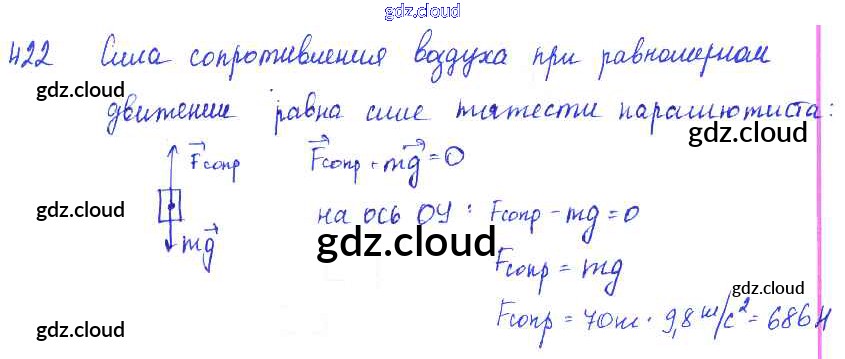 gdz.cloud
422 Сила сопротивления воздуха при равномерном
gdz.cloud
движении равна силе тяжести парашютиста:
gdz.cloud
F⃗сопр F⃗сопр + mg⃗ = 0
gdz.cloud
на ось OY: Fсопр - mg = 0
mg⃗ gdz.cloud
Fсопр = mg
gdz.cloud
Fсопр = 70кг · 9,8 м/с² = 686Н
gdz.cloud